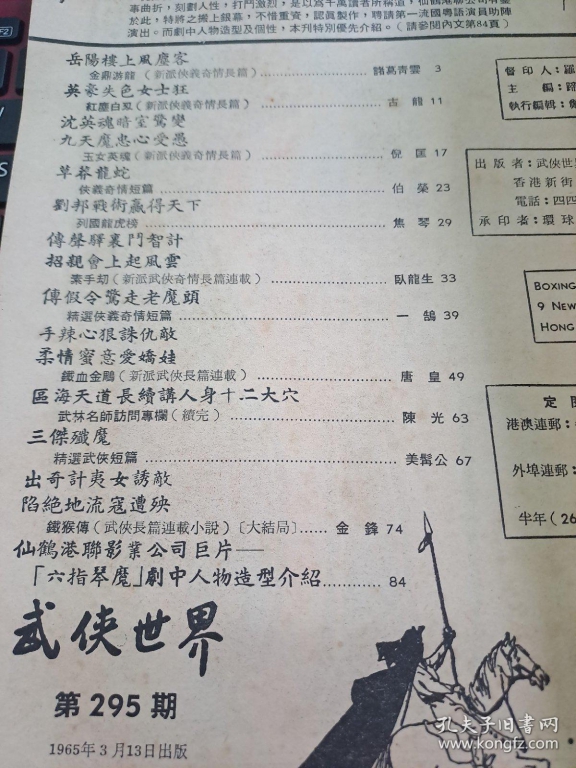 事曲折，刻劃人性，打鬥激烈，是以為千萬讀者所稱道，仙鶴港聯公司有鑒
於此，特將之搬上銀幕，不惜重資，認眞製作，聘請第一流國粵語演員助陣
演出。而劇中人物造型及個性，本刊特別優先介紹。（請參閱內文第84頁）
岳陽樓上風塵客
金鼎游龍（新派俠義奇情長篇）諸葛青雲 3
英豪失色女士狂
紅塵白刄（新派俠義奇情長篇）古龍 11
沈英魂暗室驚變
九天魔忠心受愚
玉女英魂（新派俠義奇情長篇）倪匡 17
草莽龍蛇
俠義奇情短篇 伯榮 23
劉邦戰術贏得天下
列國龍虎榜 焦琴 29
傳聲驛裏鬥智計
招親會上起風雲
素手刼（新派武俠奇情長篇連載）臥龍生 33
傳假令驚走老魔頭
精選俠義奇情短篇 一鵠 39
手辣心狠誅仇敵
柔情蜜意愛嬌娃
鐵血金鵰（新派武俠長篇連載）唐皇 49
區海天道長續講人身十二大穴
武林名師訪問專欄（續完）陳光 63
三傑殲魔
精選武俠短篇 美髯公 67
出奇計夷女誘敵
陷絕地流寇遭殃
鐵猴傳（武俠長篇連載小說）〔大結局〕...... 金鋒 74
仙鶴港聯影業公司巨片——
「六指琴魔」劇中人物造型介紹............ 84
武俠世界
第 295 期
1965年3月13日出版
督印人：羅
主編：
執行編輯：
出版者：武俠世
香港新街
電話：四四
承印者：環球
BOXING
9 NEW
HONG
定
港澳連郵：
外埠連郵：
半年（26
孔夫子旧书网
www.kongfz.com